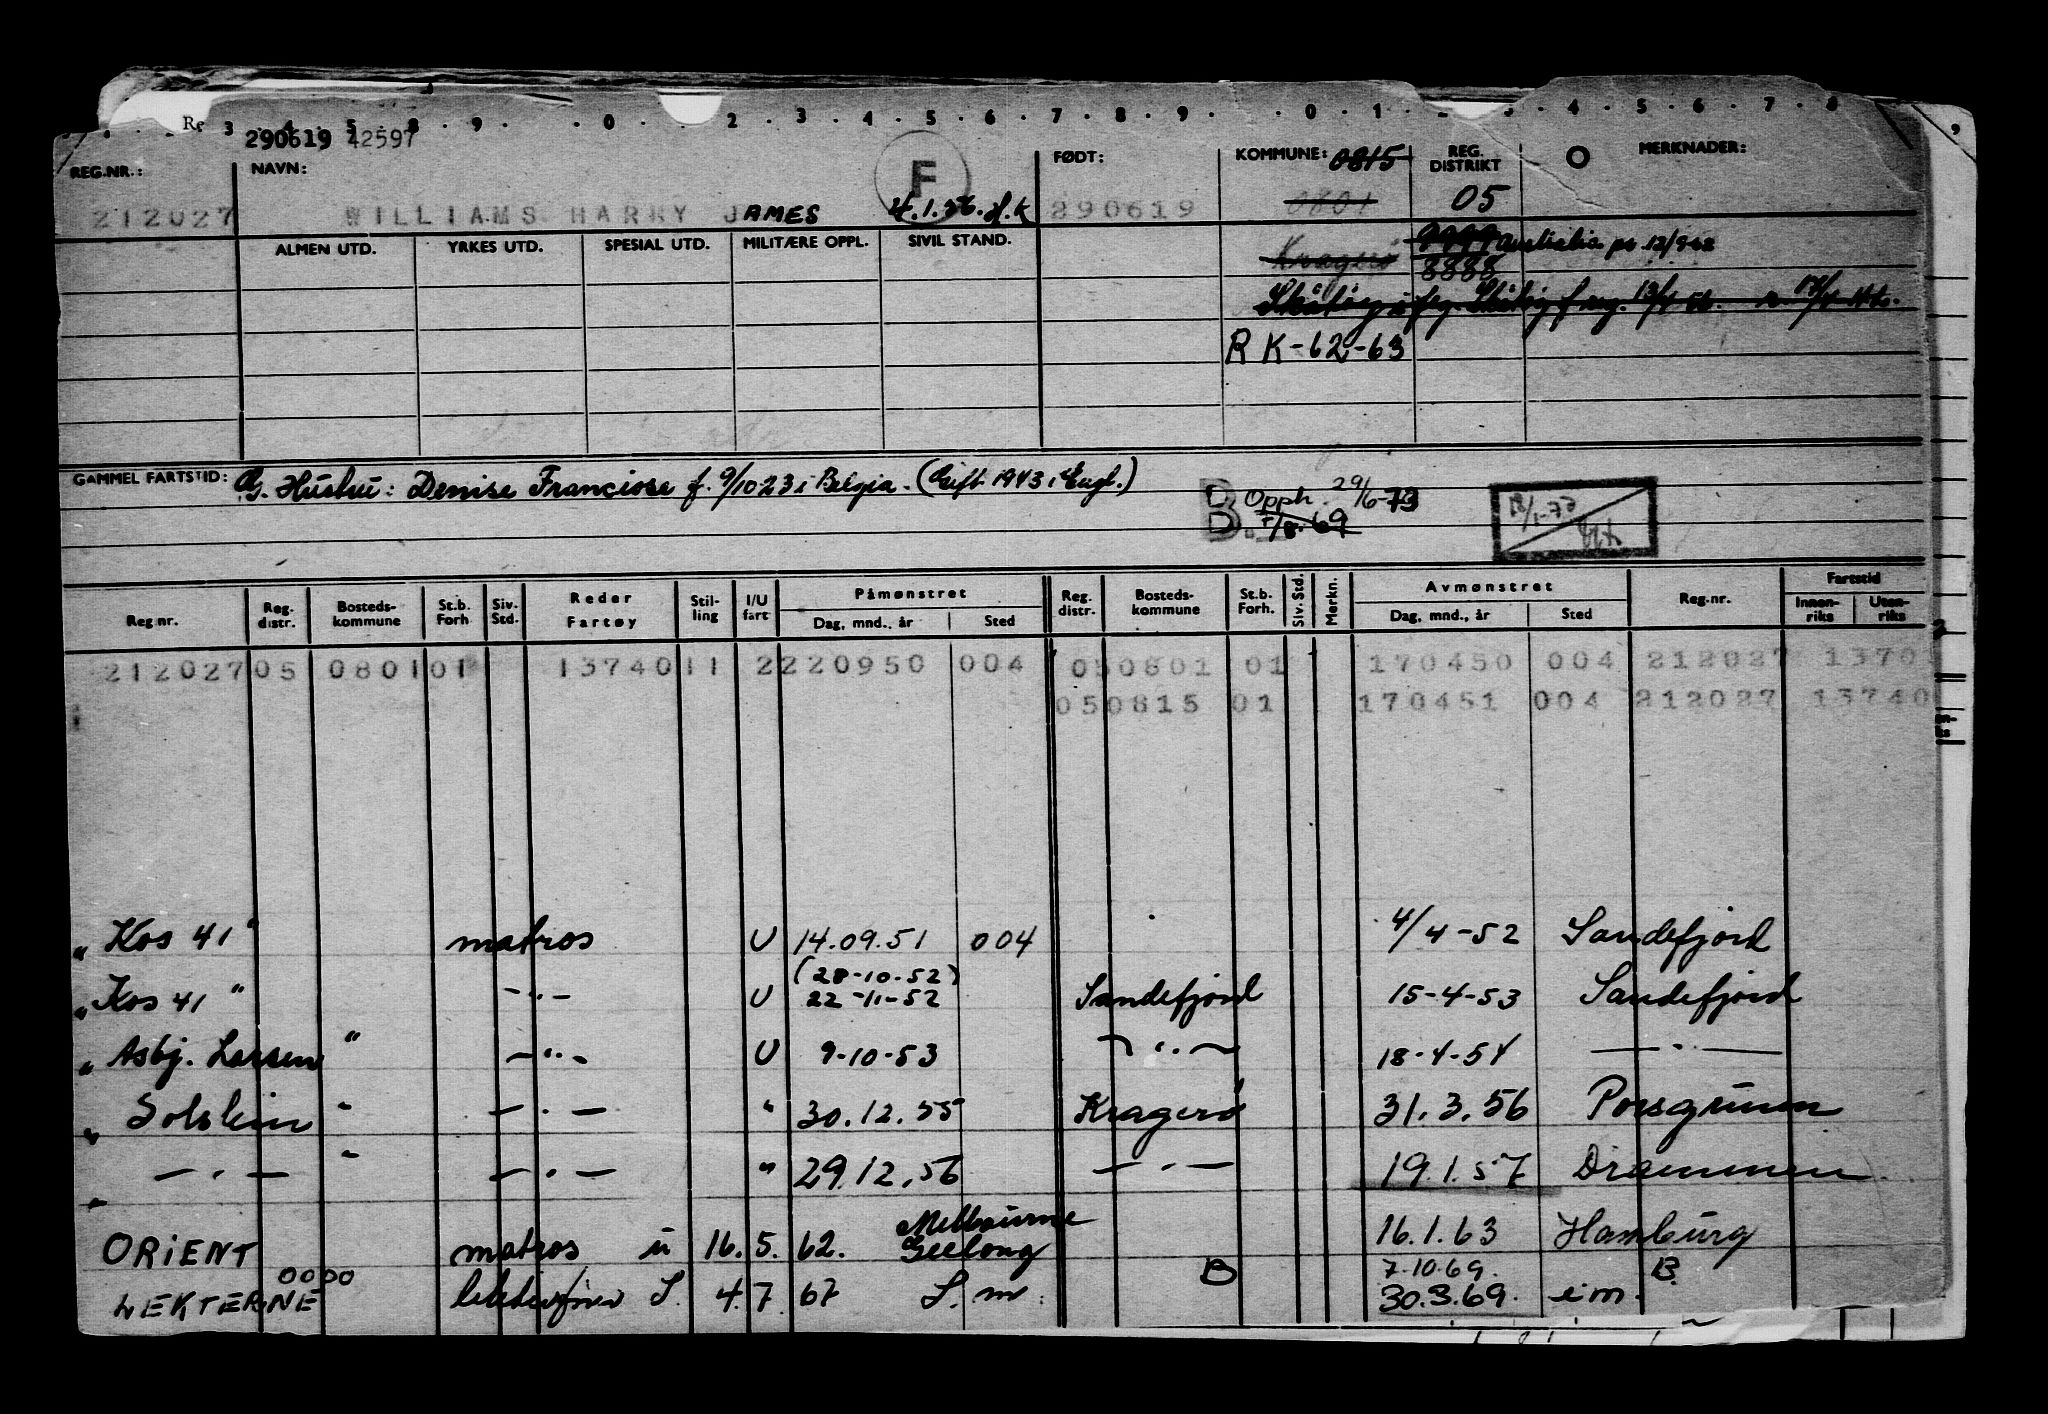 Re 3 . 4 . 5 . 8 . 9 . . 0 . . 2 . 3 . 4 . 5 . 6 . 7 . 8 . 9 . . 0 . 1 . 3 . 4 . 5 . 6 . 7 . 8 9
290619 42597
REG.NR.: NAVN: F FØDT: KOMMUNE: 0815 REG. DISTRIKT O MERKNADER:
212027 WILLIAMS HARRY JAMES 4.1.56. H.K 290619 0801 05
ALMEN UTD. YRKES UTD. SPESIAL UTD. MILITÆRE OPPL. SIVIL STAND. Kragerø 9999 Australia pr 12/9-62
8888
Skåtøy
RK-62-63
GAMMEL FARTSTID: G. Hustru: Denise Francoise f. 9/10 23 i Belgia. (Gift 1943 i Engl.)
B. Opph 29/6-73
7/8.69
18/1-73
Reg.nr. Reg. distr. Bosteds-kommune St.b. Forh Siv. Std. Reder Fartøy Stil-ling I/U fart Påmønstret Dag, mnd., år Sted Reg. distr. Bosteds-kommune St.b. Forh. Siv. Std. Merkn. Avmønstret Dag, mnd., år Sted Reg.nr. Fartstid Innen-riks Uten-riks
212027 05 0801 01 13740 11 2 220950 004 050801 01 170450 004 212027 1370
050815 01 170451 004 212027 13740
„Kos 41" matros U 14.09.51 004 4/4-52 Sandefjord
(28-10-52)
„Kos 41" -"- U 22-11-52 Sandefjord 15-4-53 Sandefjord
„Asbj. Larsen" -"- U 9-10-53 -"- 18-4-54 -"-
„Solstein" -"- " 30.12.55 Kragerø 31.3.56 Porsgrunn
„ -"- " -"- " 29.12.56 -"- 19.1.57 Drammen
Melbourne
ORIENT matros u 16.5.62. Geelong 16.1.63 Hamburg
0000 B 7.10.69. B
LEKTERNE S. 4.7 67 S. m. 30.3.69. i m.